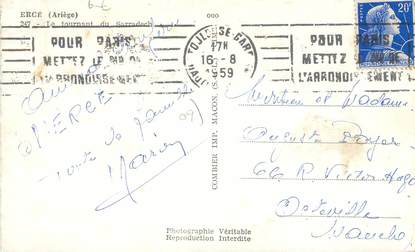 6-E
ERCE (Ariège)
247 - Le tournant du
000
POUR PARIS
METTEZ LE
L'ARRONDISSEMENT
TOULOUSE-GARE
17H
16-8
1959
POUR PARIS
METTEZ
L'ARRONDISSEMENT
20F
D'ERCE
toute la famille
(09)
COMBIER IMP. MACON
Monsieur et Madame
Auguste
66 R. Victor Hugo
Octeville
Manche
Photographie Véritable
Reproduction Interdite